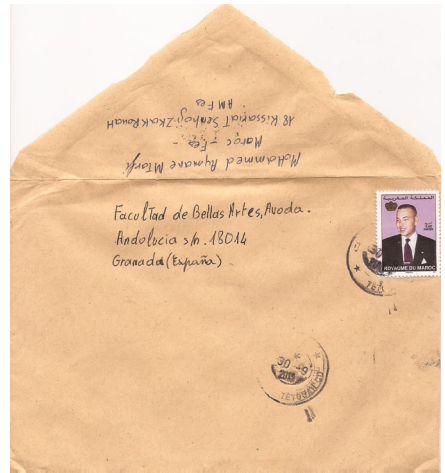 MoHammed Aymane Mtarji
Maroc - Fes -
18 Kissariat Senhaji - Zkak Romah
AM Fes
Facultad de Bellas Artes, Avoda.
Andalucia s/n. 18014
Granada (España).
المملكة المغربية
ROYAUME DU MAROC
30
TETOUAN
30 -9
2013
TETOUAN CDP